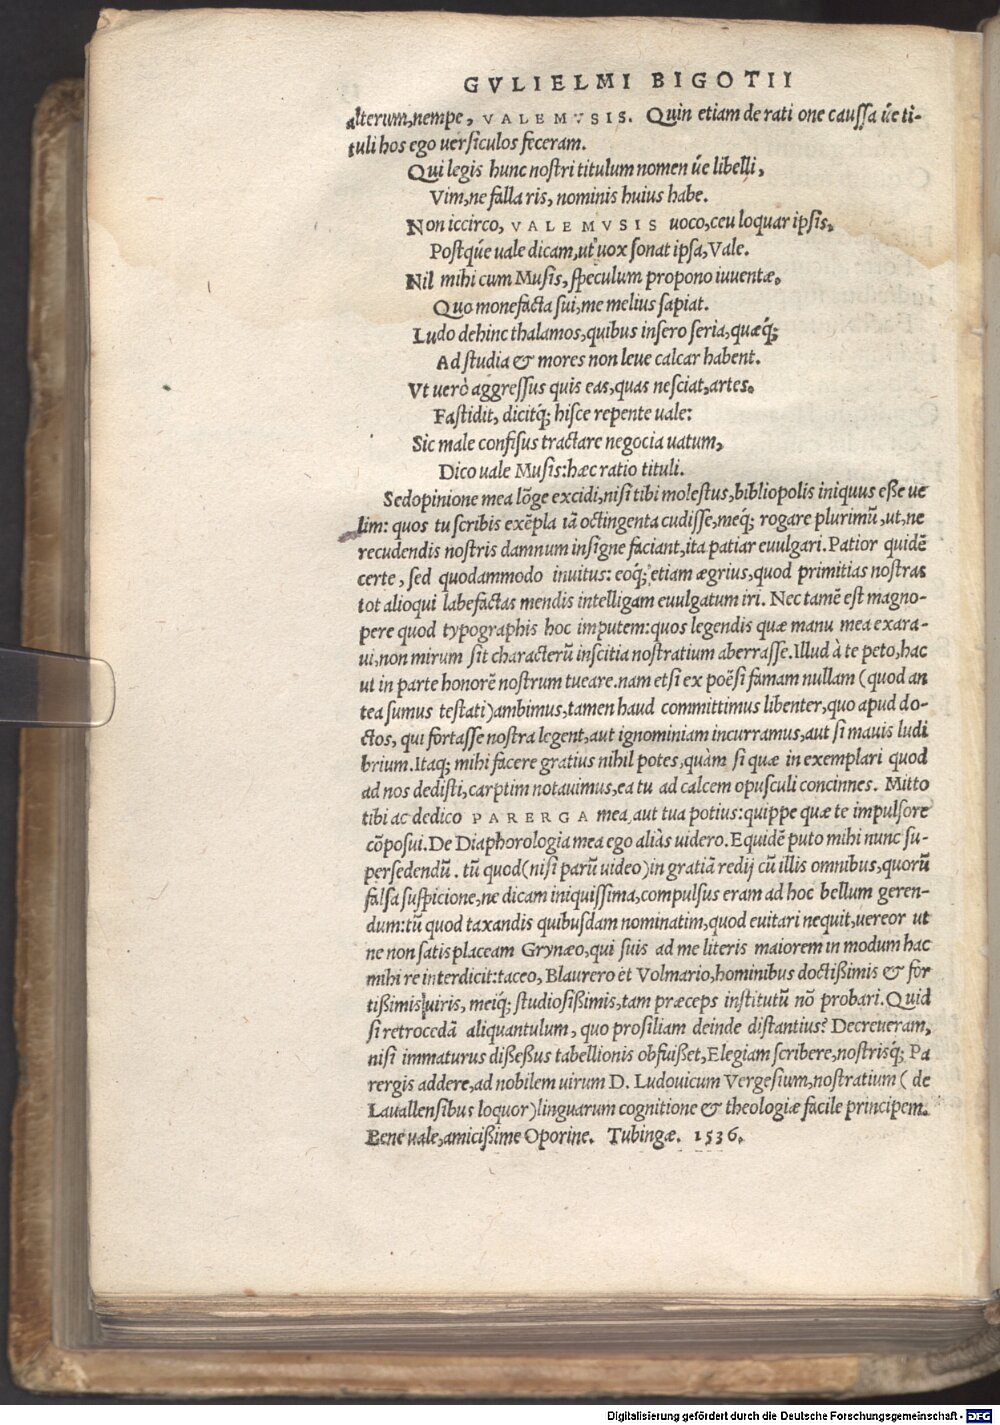 GVLIELMI BIGOTII
alterum, nempe, VALEMVSIS. Quin etiam de rati one caussa úe ti-
tuli hos ego uersiculos feceram.
Qui legis hunc nostri titulum nomen úe libelli,
Vim, ne falla ris, nominis huius habe.
Non iccirco, VALEMVSIS uoco, ceu loquar ipsis,
Postq́ue uale dicam, ut uox sonat ipsa, Vale.
Nil mihi cum Musis, speculum propono iuuentæ,
Quo monefacta sui, me melius sapiat.
Ludo dehinc thalamos, quibus insero seria, quæq́;
Ad studia & mores non leue calcar habent.
Vt uerò aggressus quis eas, quas nesciat, artes,
Fastidit, dicitq́; hisce repente uale:
Sic male confisus tractare negocia uatum,
Dico uale Musis: hæc ratio tituli.
Sed opinione mea lõge excidi, nisi tibi molestus, bibliopolis iniquus esse ue
lim: quos tu scribis exẽpla iã octingenta cudisse, meq́; rogare plurimũ, ut, ne
recudendis nostris damnum insigne faciant, ita patiar euulgari. Patior quidẽ
certe, sed quodammodo inuitus: eoq́; etiam ægrius, quod primitias nostras
tot alioqui labefactas mendis intelligam euulgatum iri. Nec tamẽ est magno-
pere quod typographis hoc imputem: quos legendis quæ manu mea exara-
ui, non mirum sit characterũ inscitia nostratium aberrasse. Illud à te peto, hac
ut in parte honorẽ nostrum tueare. nam etsi ex poësi famam nullam (quod an
tea sumus testati) ambimus, tamen haud committimus libenter, quo apud do-
ctos, qui fortasse nostra legent, aut ignominiam incurramus, aut si mauis ludi
brium. Itaq; mihi facere gratius nihil potes, quàm si quæ in exemplari quod
ad nos dedisti, carptim notauimus, ea tu ad calcem opusculi concinnes. Mitto
tibi ac dedico PARERGA mea, aut tua potius: quippe quæ te impulsore
cõposui. De Diaphorologia mea ego aliàs uidero. Equidẽ puto mihi nunc su-
persedendũ. tũ quod (nisi parũ uideo) in gratiã redij cũ illis omnibus, quorũ
falsa suspicione, ne dicam iniquissima, compulsus eram ad hoc bellum geren-
dum: tũ quod taxandis quibusdam nominatim, quod euitari nequit, uereor ut
ne non satis placeam Grynæo, qui suis ad me literis maiorem in modum hac
mihi re interdicit: taceo, Blaurero et Volmario, hominibus doctissimis & for
tissimis uiris, meiq́; studiosissimis, tam præceps institutũ nõ probari. Quid
si retrocedã aliquantulum, quo prosiliam deinde distantius? Decreueram,
nisi immaturus dissessus tabellionis obfuisset, Elegiam scribere, nostrisq́; Pa
rergis addere, ad nobilem uirum D. Ludouicum Vergesium, nostratium ( de
Lauallensibus loquor) linguarum cognitione & theologiæ facile principem.
Bene uale, amicissime Oporine. Tubingæ. 1536.
Digitalisierung gefördert durch die Deutsche Forschungsgemeinschaft - DFG